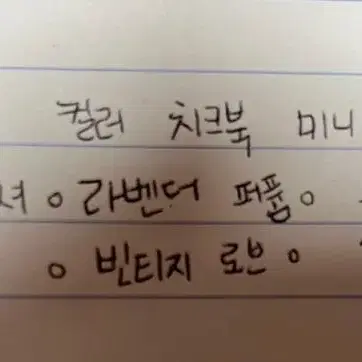 컬러 치크북 미니
셔 o 라벤더 퍼퓸 o
o 빈티지 로브 o